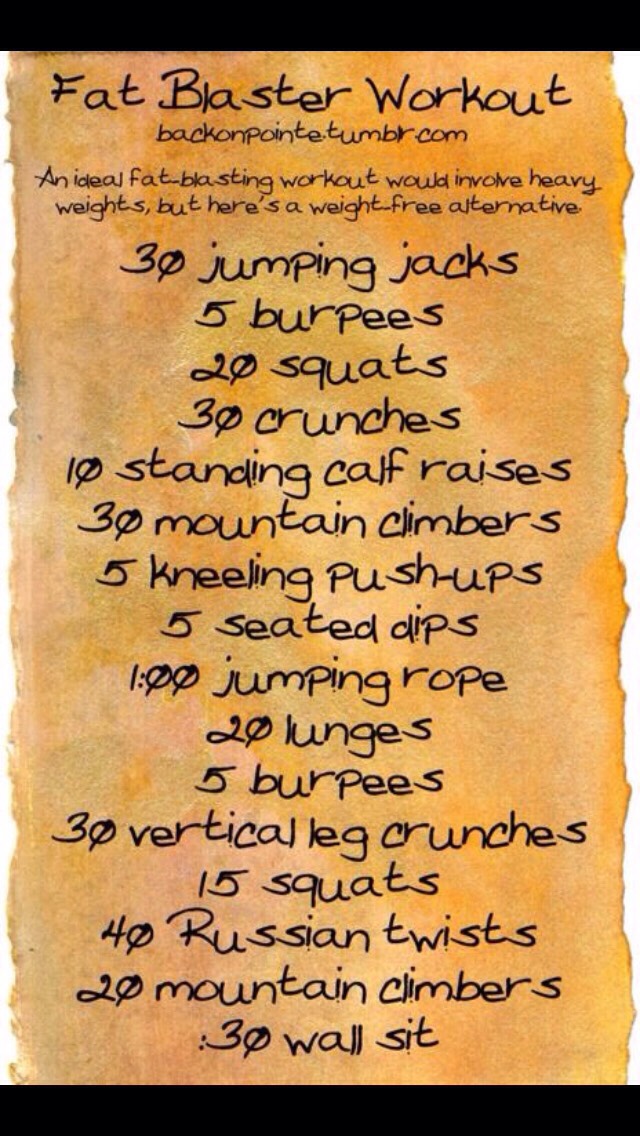 Fat Blaster Workout
backonpointe.tumblr.com
An ideal fat-blasting workout would involve heavy
weights, but here's a weight-free alternative.
30 jumping jacks
5 burpees
20 squats
30 crunches
10 standing calf raises
30 mountain climbers
5 kneeling push-ups
5 seated dips
1:00 jumping rope
20 lunges
5 burpees
30 vertical leg crunches
15 squats
40 Russian twists
20 mountain climbers
:30 wall sit